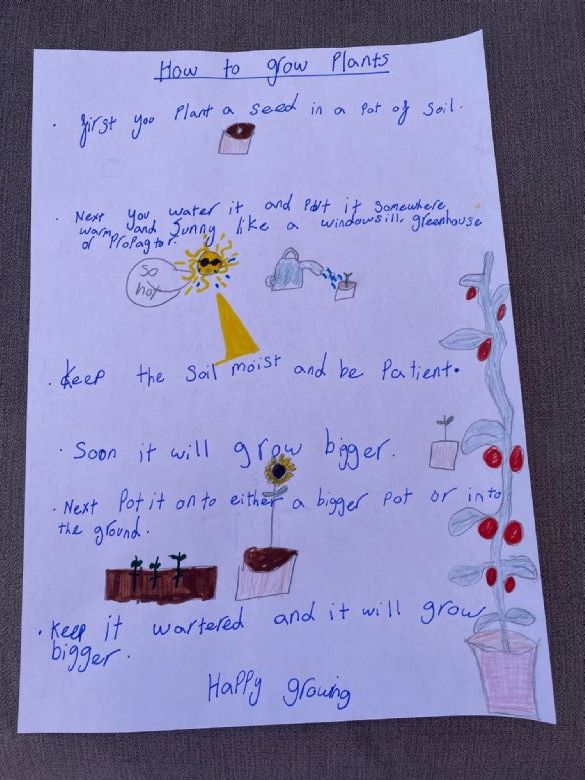 How to grow Plants
. first you Plant a seed in a Pot of Soil.
. Next you water it and put it Somewhere
warm and Sunny like a windowsill, greenhouse
or Propagtor.
So
hot
. Keep the Soil moist and be Patient.
. Soon it will grow bigger.
. Next Pot it on to either a bigger Pot or into
the ground.
. Keep it wartered and it will grow
bigger.
Happy growing